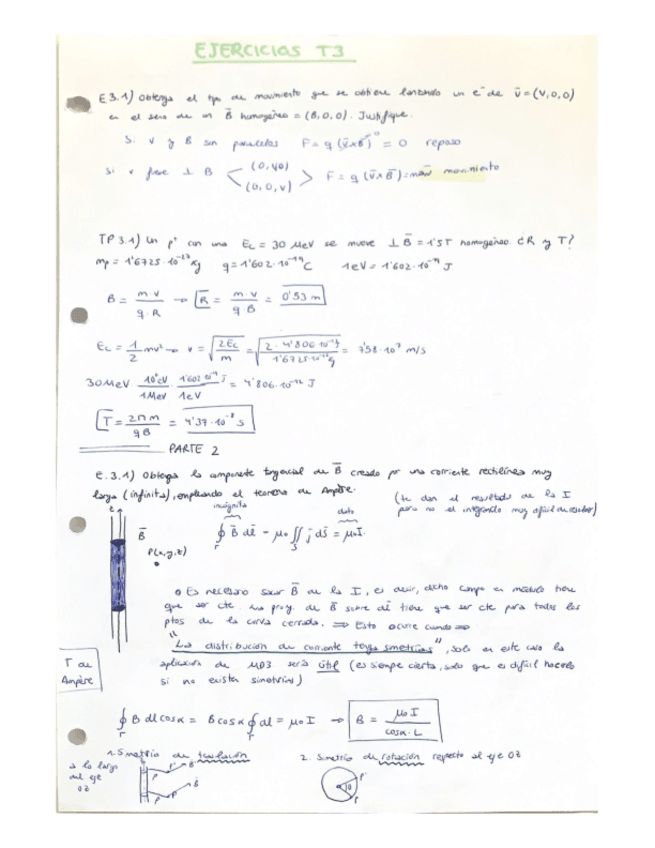 EJERCICIOS T3
E.3.1) Obtenga el tipo de movimiento que se obtiene lanzando un e⁻ de v̄ = (V,0,0)
en el seno de un B̄ homogéneo = (B,0,0). Justifique.
Si v y B son paralelos F = q (v̄xB̄) = 0 reposo
Si v fuese ⊥ B
(0,v,0)
(0,0,v)
F = q (v̄xB̄) = movimiento
TP 3.1) Un p⁺ con una Ec = 30 MeV se mueve ⊥ B̄ = 1'5T homogéneo. ¿R y T?
mp = 1'6725·10⁻²⁷ kg q = 1'602·10⁻¹⁹ C 1eV = 1'602·10⁻¹⁹ J
B = m·v / q·R → R = m·v / q B = 0'53 m
Ec = 1/2 mv² → v = √(2Ec / m) = √(2·4'806·10⁻¹² J / 1'6725·10⁻²⁷ kg) = 7'58·10⁷ m/s
30 MeV · 10⁶eV / 1MeV · 1'602·10⁻¹⁹ J / 1eV = 4'806·10⁻¹² J
T = 2πm / qB = 4'37·10⁻⁸ s
PARTE 2
E.3.1) Obtenga la componente tangencial de B̄ creado por una corriente rectilínea muy
larga (infinita), empleando el teorema de Ampère.
(te dan el resultado de la I
pero no el integrando muy difícil de resolver)
incógnita dato
z B̄ ∮ B̄ dl̄ = μ₀ ∬ j̄ ds̄ = μ₀I.
P(x,y,z)
Es necesario sacar B̄ de la I, es decir, dicho campo en módulo tiene
que ser cte. La proy. de B̄ sobre dl̄ tiene que ser cte para todos los
ptos de la curva cerrada. ⇒ Esto ocurre cuando ⇒
"La distribución de corriente tenga simetrías", solo en este caso la
T de
Ampère
aplicación de será útil (es siempre cierta, solo que es difícil hacerlo
si no existen simetrías)
∮ B dl cosα = B cosα ∮ dl = μ₀ I → B = μ₀ I / cosα · L
1. Simetría de traslación
a lo largo
del eje
OZ
2. Simetría de rotación respecto al eje OZ